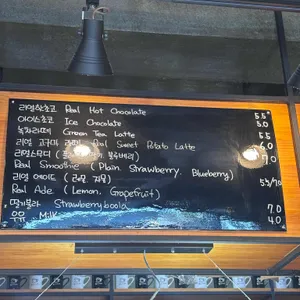 리얼핫초코 Real Hot Chocolate 5.5
아이스초코 Ice Chocolate 5.0
녹차라떼 Green Tea Latte 5.5
리얼 고구마 라떼 Real Sweet Potato Latte 6.0
리얼스무디 ( 블루베리 ) 7.0
Real Smoothie ( Plain, Strawberry, Blueberry )
리얼 에이드 ( 레몬, 자몽 )
Real Ade ( Lemon, Grapefruit )
딸기볼라 Strawberryboola 7.0
우유 Milk 4.0